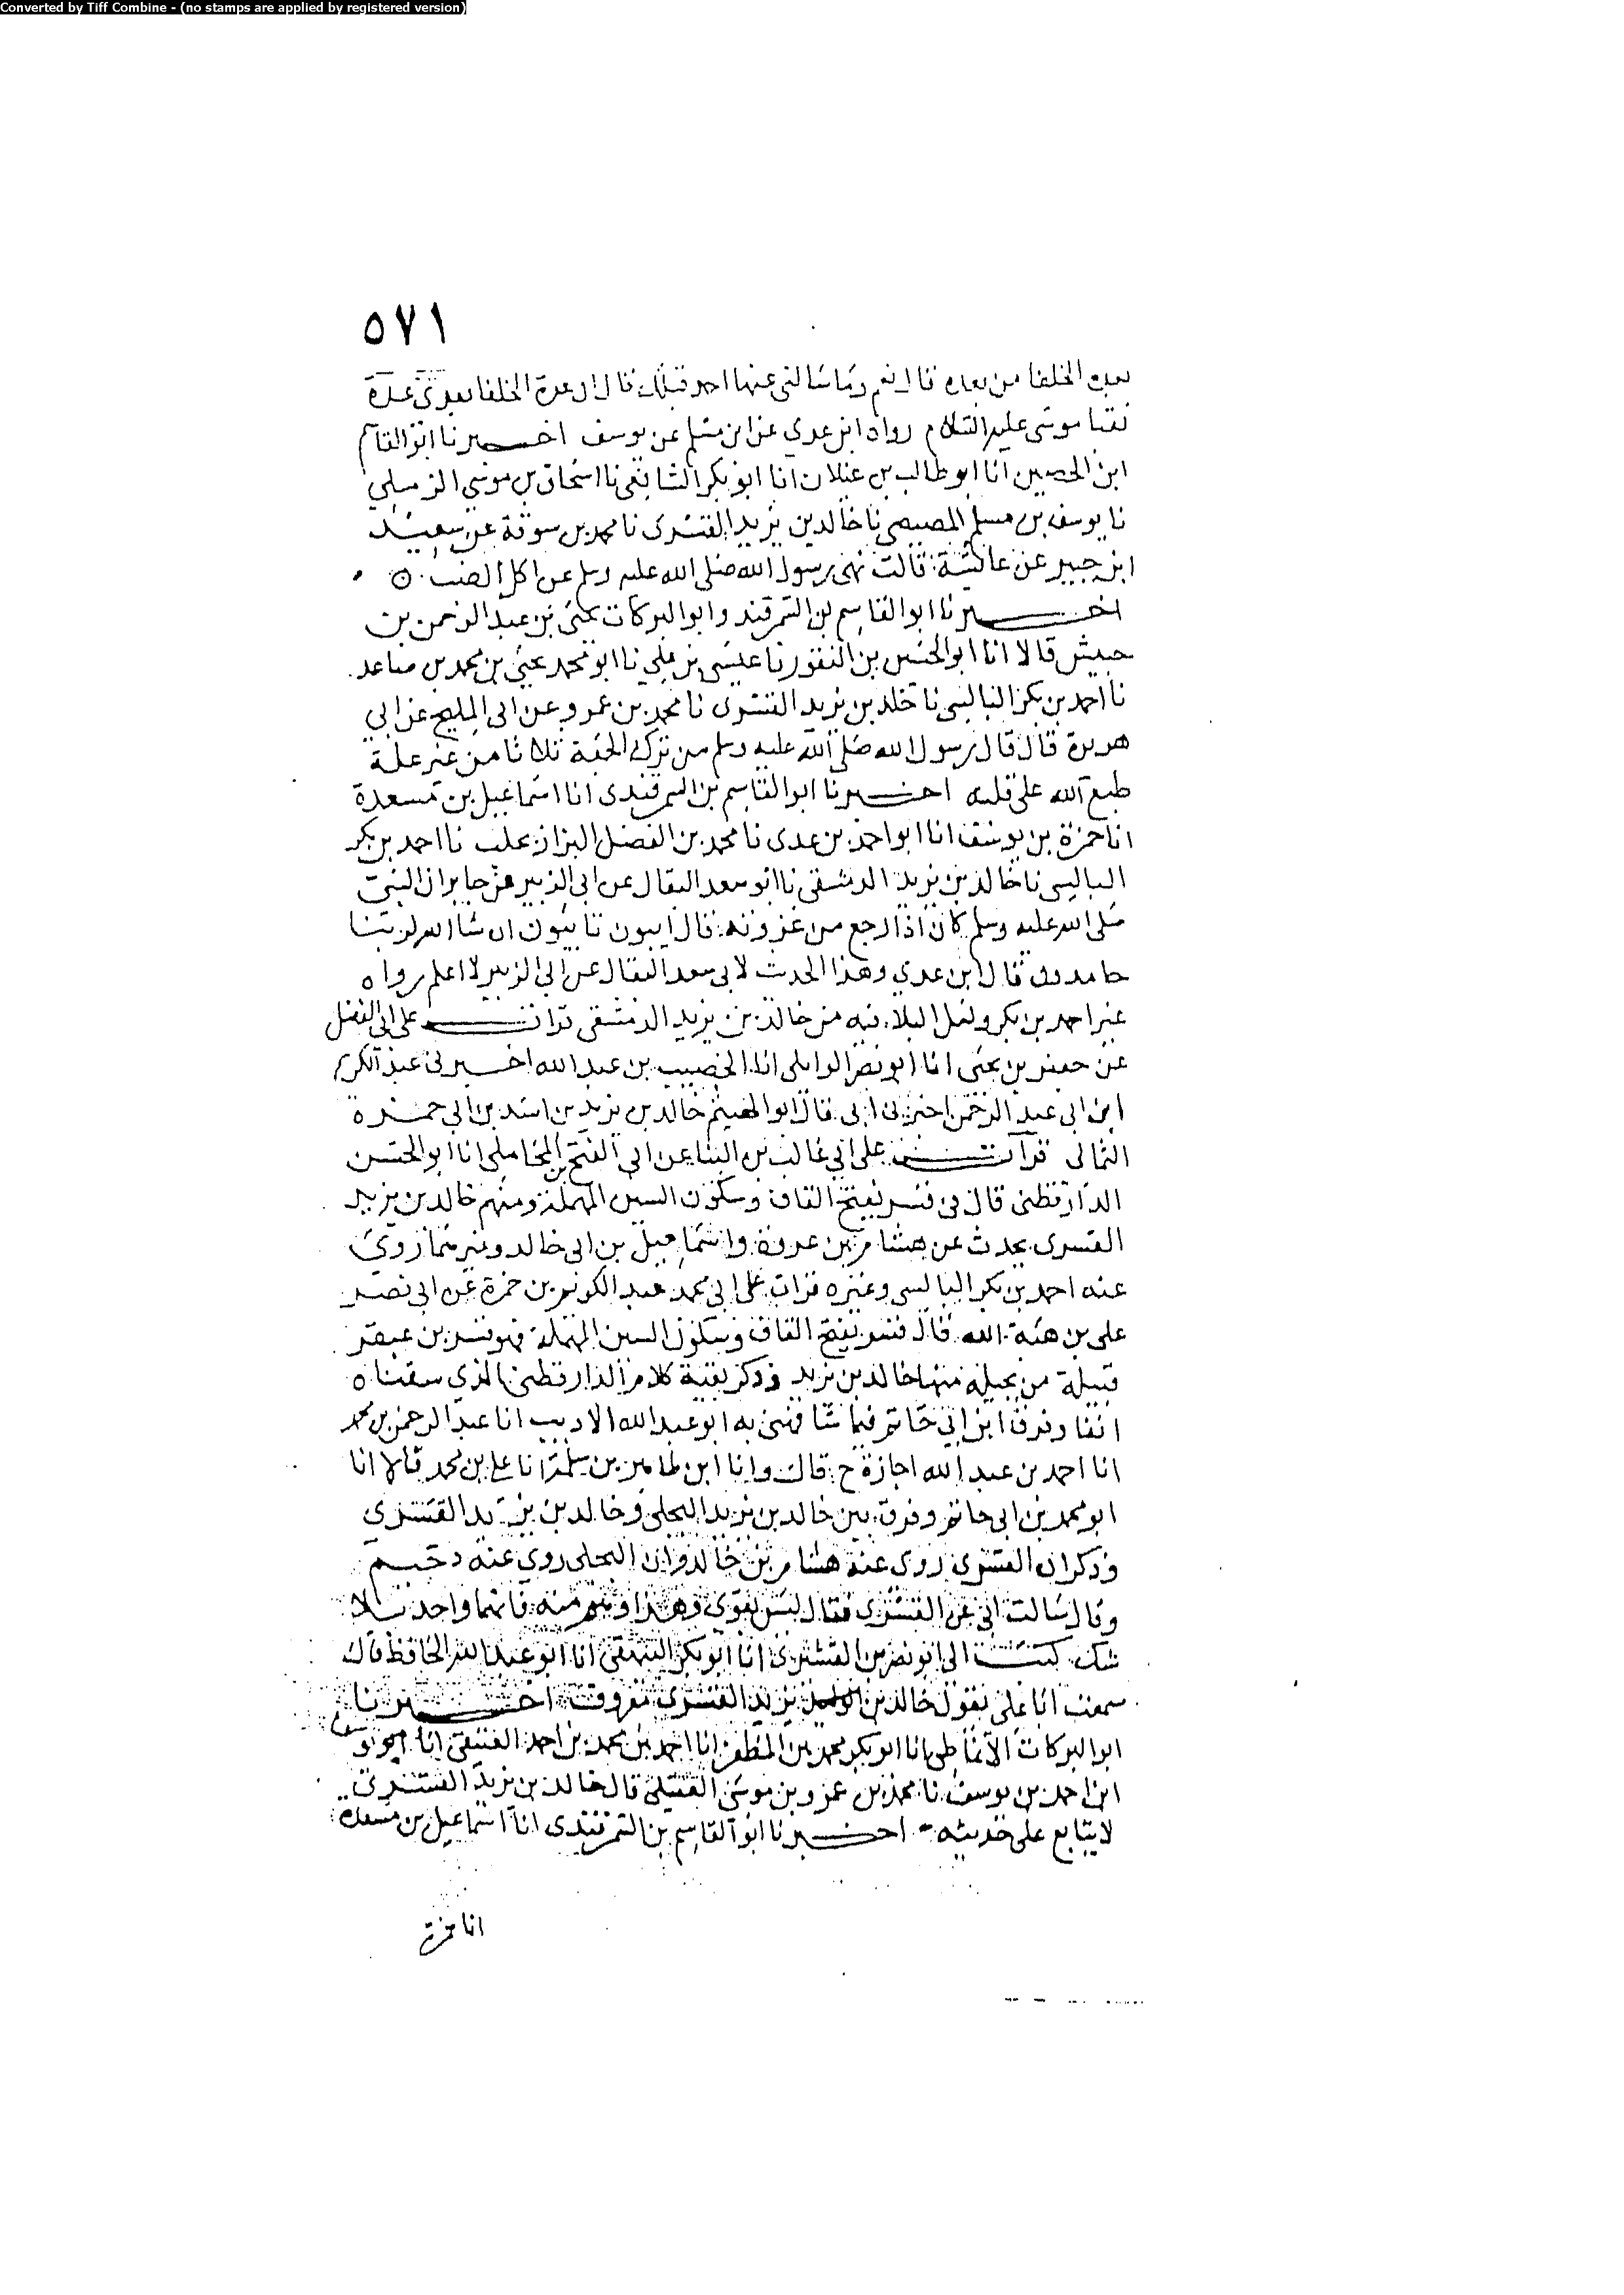 Converted by Tiff Combine - (no stamps are applied by registered version)
٥٧١
بعدة الخلفا من بعده قال نعم وما سالني عنها احد قبلك قال ان عدة الخلفا بعدي عدة
نقبا موسى عليه السلام رواه ابن عدي عن ابن مسلم عن يوسف اخبرنا ابو القاسم
ابن الحصين انا ابو طالب بن غيلان انا ابو بكر الشافعي نا اسحاق بن موسى الرملي
نا يوسف بن مسلم المصيصي نا خالد بن يزيد القسري نا محمد بن سوقة عن سعيد
ابن جبير عن عائشة قالت نهى رسول الله صلى الله عليه وسلم عن اكل الضب ٥
اخبرنا ابو القاسم بن السمرقندي وابو البركات يحيى بن عبد الرحمن بن
حبيش قالا انا ابو الحسين بن النقور نا عيسى بن علي نا ابو محمد يحيى بن محمد بن صاعد
نا احمد بن بكر البالسي نا خلد بن يزيد القسري نا محمد بن عمرو عن ابي المليح عن ابي
هريرة قال قال رسول الله صلى الله عليه وسلم من ترك الجمعة ثلاثا من غير علة
طبع الله على قلبه اخبرنا ابو القاسم بن السمرقندي انا اسماعيل بن مسعدة
انا حمزة بن يوسف انا ابو احمد بن عدي نا محمد بن الفضل البزاز بحلب نا احمد بن بكر
البالسي نا خالد بن يزيد الدمشقي نا ابو سعد البقال عن ابي الزبير عن جابر ان النبي
صلى الله عليه وسلم كان اذا رجع من غزوته قال ايبون تايبون ان شا الله لربنا
حامدون قال ابن عدي وهذا الحديث لابي سعد البقال عن ابي الزبير لا اعلم رواه
غير احمد بن بكر ولعل البلاء فيه من خالد بن يزيد الدمشقي قرات على ابي الفضل
عن جعفر بن يحيى انا ابو نصر الوايلي انا الخصيب بن عبد الله اخبرني عبد الكريم
ابن ابي عبد الرحمن اخبرني ابي قال ابو الهيثم خالد بن يزيد بن اسد بن ابي حمزة
الثمالي قرات على ابي غالب بن البنا عن ابي الفتح بن المحاملي انا ابو الحسن
الدارقطني قال في قسر بفتح القاف وسكون السين المهملة ومنهم خالد بن يزيد
القسري يحدث عن هشام بن عروة واسماعيل بن ابي خالد وغيرهما روى
عنه احمد بن بكر البالسي وغيره قرات على ابي محمد عبد الكريم بن حمزة عن ابي نصر
علي بن هبة الله قال قسر بفتح القاف وسكون السين المهملة فهو قسر بن عبقر
قبيلة من بجيلة منها خالد بن يزيد وذكر بقية كلام الدارقطني الذي سقناه
انفا وفرق ابن ابي حاتم فيما شافهني به ابو عبد الله الاديب انا عبد الرحمن بن محمد
انا احمد بن عبد الله اجازة ح قال وانا ابن طاهر بن سلمة انا علي بن محمد قالا انا
ابو محمد بن ابي حاتم وفرق بين خالد بن يزيد البجلي وخالد بن يزيد القسري
وذكر ان القسري روى عنه هشام بن خالد وان البجلي روى عنه دحيم
وقال سالت ابي عن القسري فقال ليس بقوي وهذا وهم منه فانهما واحد بلا
شك كتبت الى ابو نصر بن القشيري انا ابو بكر البيهقي انا ابو عبد الله الحافظ قال
سمعت ابا علي يقول خالد بن يزيد القسري معروف اخبرنا
ابو البركات الانماطي انا ابو بكر محمد بن المظفر انا احمد بن محمد بن احمد العتيقي انا يوسف
ابن احمد بن يوسف نا محمد بن عمرو بن موسى العقيلي قال خالد بن يزيد القسري
لا يتابع على حديثه اخبرنا ابو القاسم بن السمرقندي انا اسماعيل بن مسعدة
انا حمزة